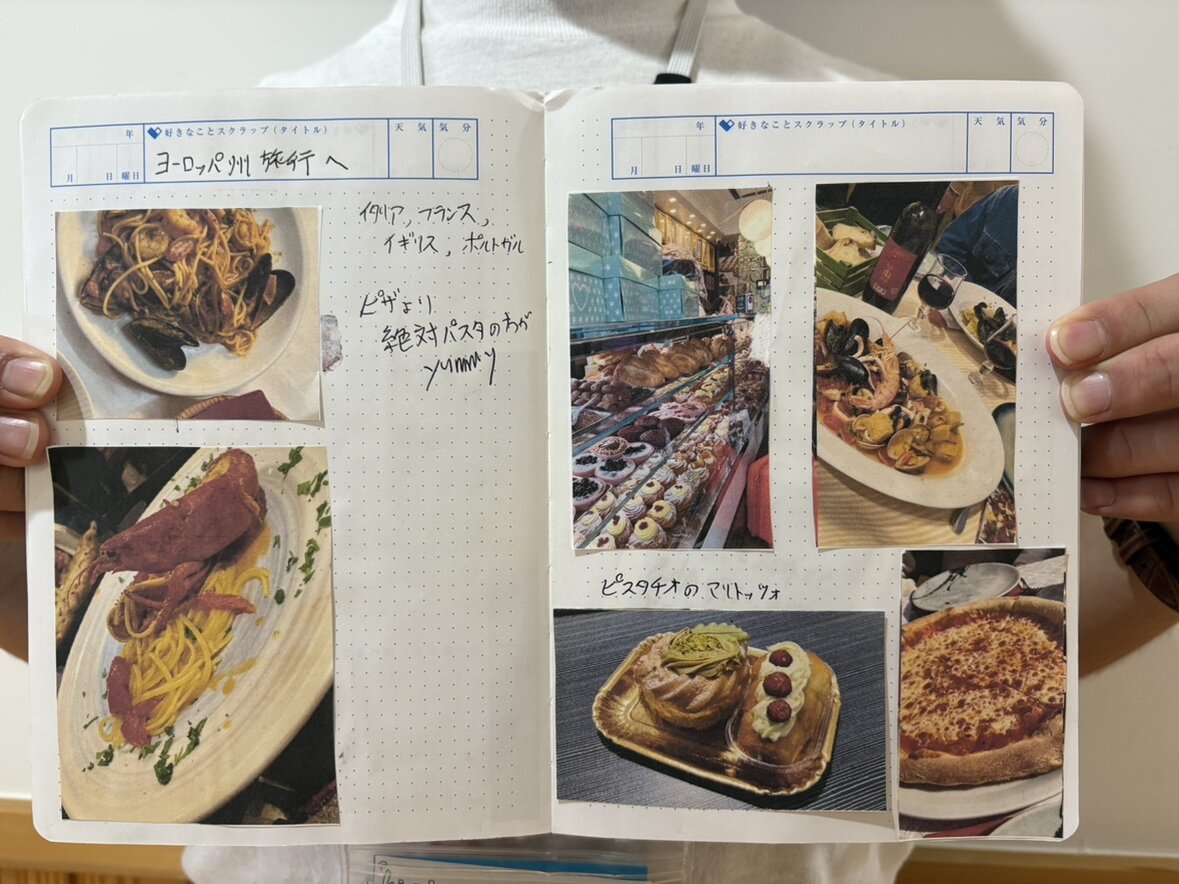 年
月
曜日
好きなことスクラップ（タイトル）
天気
気分
ヨーロッパ州 旅行へ
イタリア, フランス,
イギリス, ポルトガル
ピザより
絶対パスタのわが
yummy
年
月
曜日
好きなことスクラップ（タイトル）
天気
気分
ピスタチオのマリトッツォ